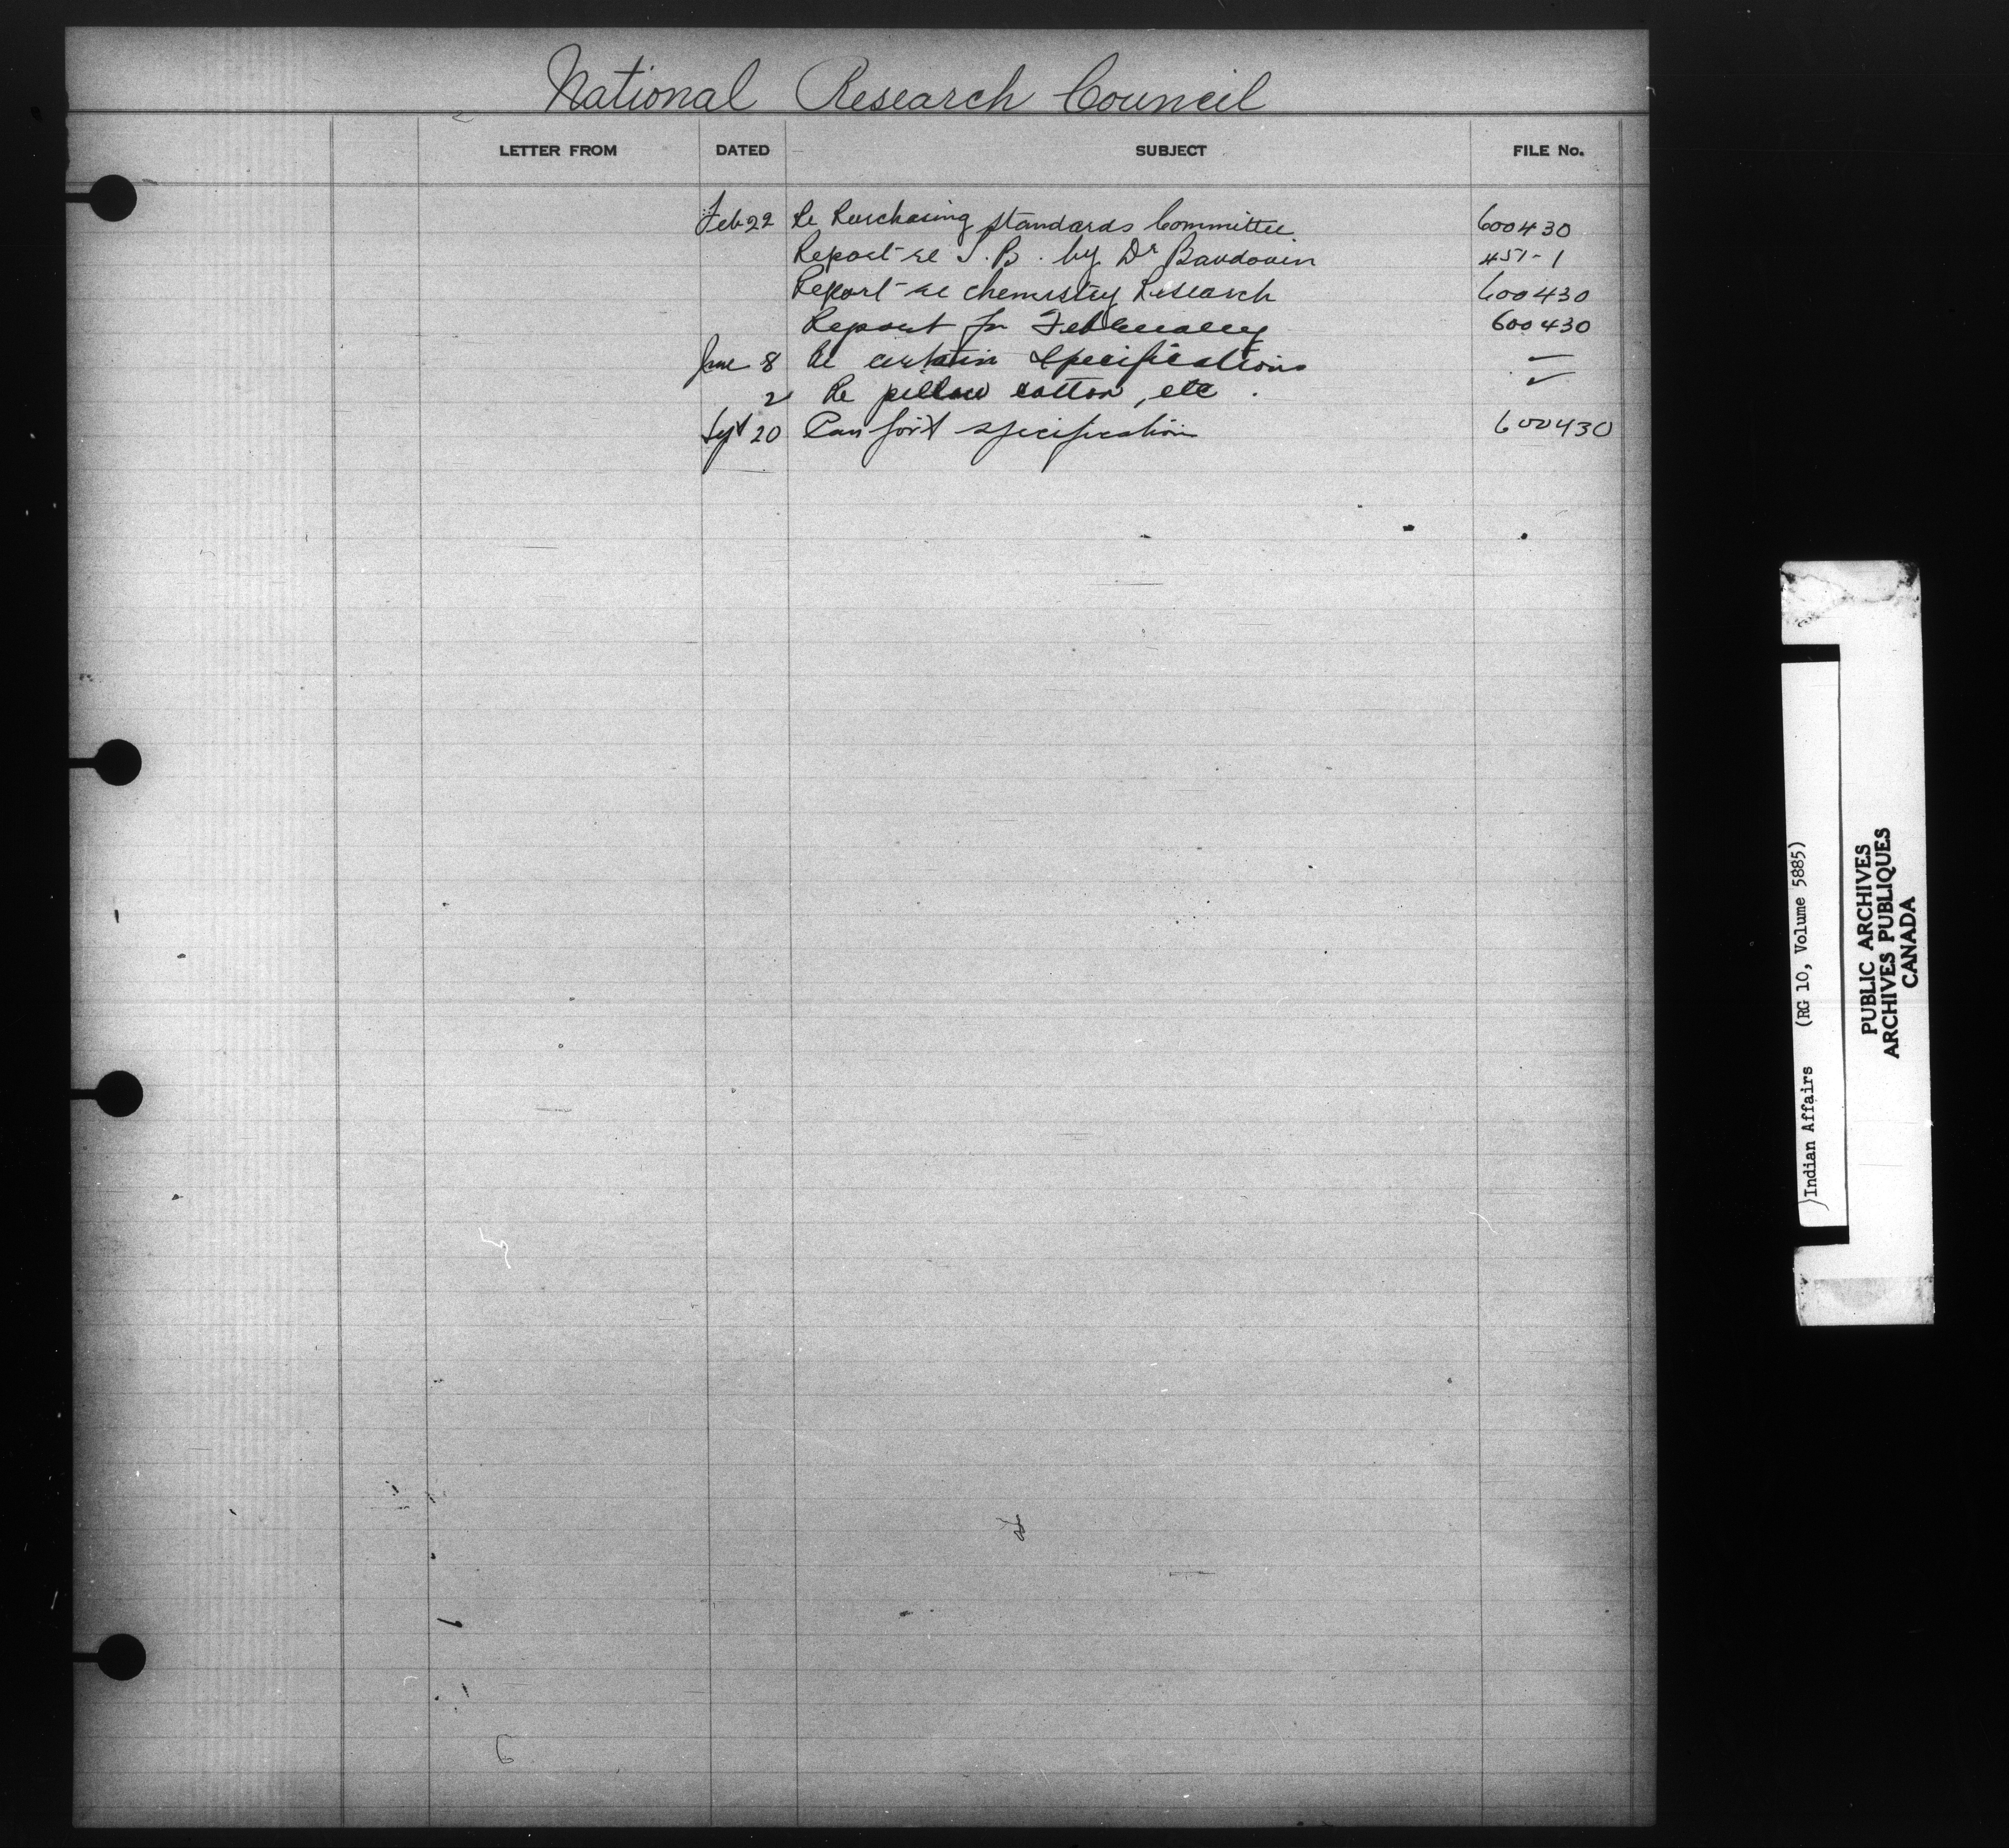 National Research Council
LETTER FROM DATED SUBJECT FILE No.
Feb 22 Re Purchasing Standards Committee 600430
Report re T.B. by Dr Baudouin 451-1
Report re chemistry Research 600430
Report for February 600430
June 8 Re certain specifications
2 Re pillow cotton, etc.
Sept 20 Can Gov't specification 600430
Indian Affairs (RG 10, Volume 5885)
PUBLIC ARCHIVES
ARCHIVES PUBLIQUES
CANADA